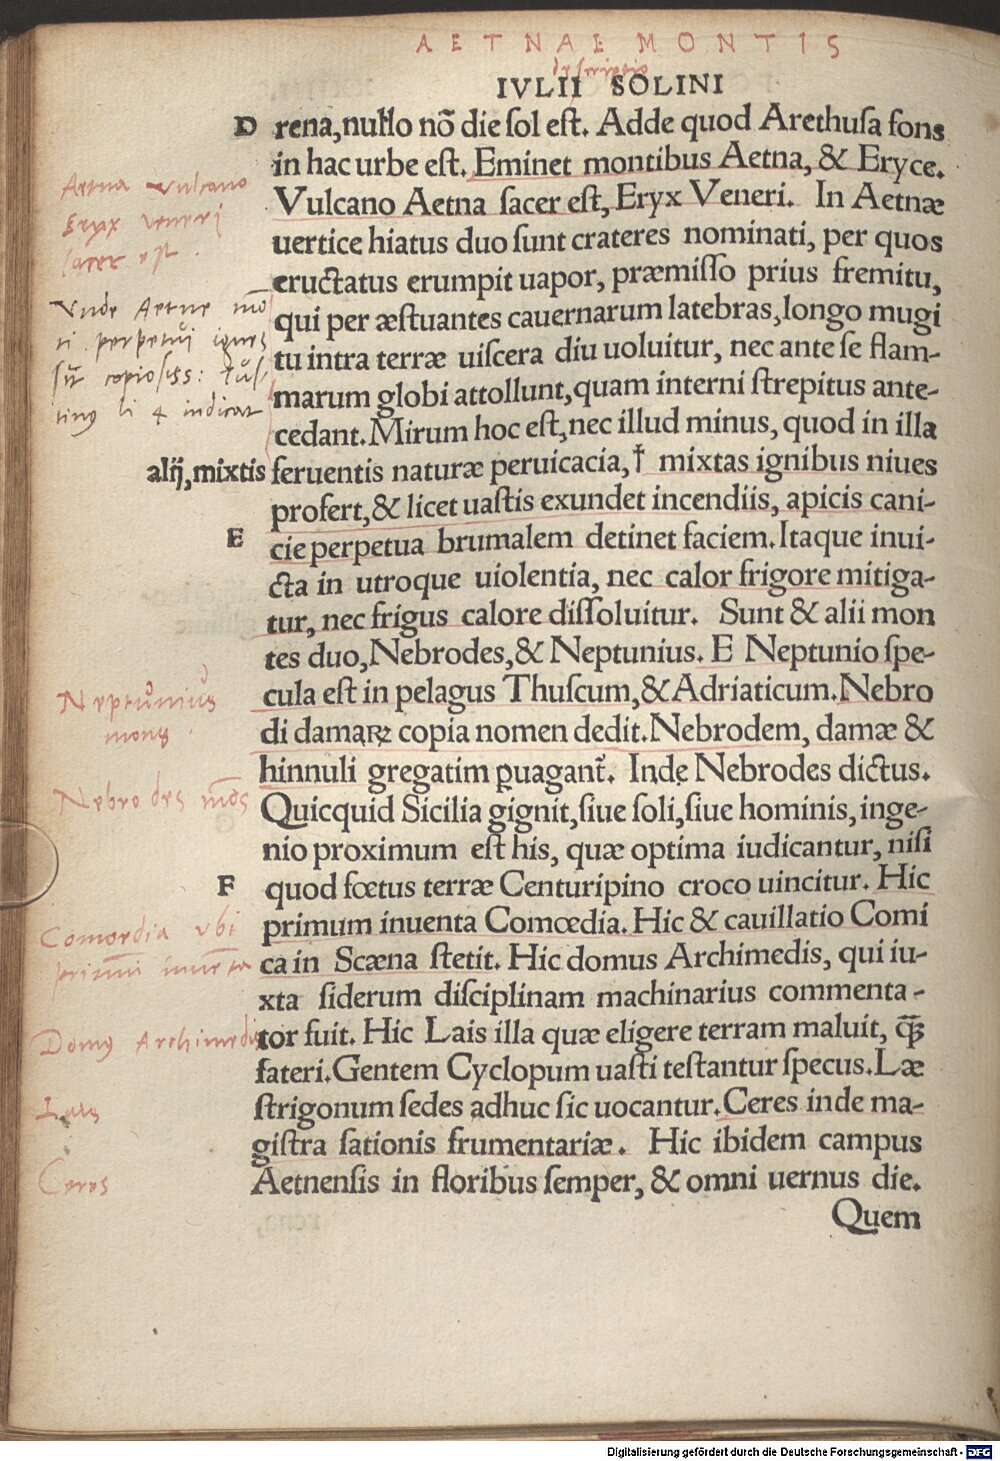 AETNAE MONTIS
descriptio
IVLII SOLINI
D rena, nullo nõ die sol est. Adde quod Arethusa fons
in hac urbe est. Eminet montibus Aetna, & Eryce.
Aetna Vulcano
Eryx Veneri
sacer est.
Vulcano Aetna sacer est, Eryx Veneri. In Aetnæ
uertice hiatus duo sunt crateres nominati, per quos
eructatus erumpit uapor, præmisso prius fremitu,
Vnde Aetne mõ
ti perpetui ignes
sĩt copiosiss: Ius/
tinus li 4 indicat
qui per æstuantes cauernarum latebras, longo mugi
tu intra terræ uiscera diu uoluitur, nec ante se flam-
marum globi attollunt, quam interni strepitus ante-
cedant. Mirum hoc est, nec illud minus, quod in illa
alij, mixtis feruentis naturæ peruicacia, † mixtas ignibus niues
profert, & licet uastis exundet incendiis, apicis cani-
E cie perpetua brumalem detinet faciem. Itaque inui-
cta in utroque uiolentia, nec calor frigore mitiga-
tur, nec frigus calore dissoluitur. Sunt & alii mon
tes duo, Nebrodes, & Neptunius. E Neptunio spe-
Neptunius
mons
cula est in pelagus Thuscum, & Adriaticum. Nebro
di damaꝝ copia nomen dedit. Nebrodem, damæ &
Nebrodes mõs
hinnuli gregatim ꝑuagant᷑. Inde Nebrodes dictus.
Quicquid Sicilia gignit, siue soli, siue hominis, inge-
nio proximum est his, quæ optima iudicantur, nisi
F quod fœtus terræ Centuripino croco uincitur. Hic
Comoedia vbi
primũ inuẽta
primum inuenta Comœdia. Hic & cauillatio Comi
ca in Scæna stetit. Hic domus Archimedis, qui iu-
xta siderum disciplinam machinarius commenta-
Domus Archimedis
tor fuit. Hic Lais illa quæ eligere terram maluit, q̃ꝫ
fateri. Gentem Cyclopum uasti testantur specus. Læ
Lais
strigonum sedes adhuc sic uocantur. Ceres inde ma-
gistra sationis frumentariæ. Hic ibidem campus
Ceres
Aetnensis in floribus semper, & omni uernus die.
Quem
Digitalisierung gefördert durch die Deutsche Forschungsgemeinschaft - DFG